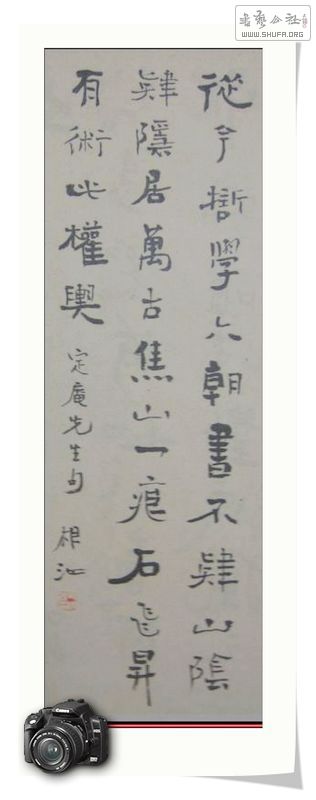 書藝公社
WWW.SHUFA.ORG
從今誓學六朝書不肄山陰
肄隱居萬古焦山一痕石飛昇
有術此權輿
定庵先生句
Canon